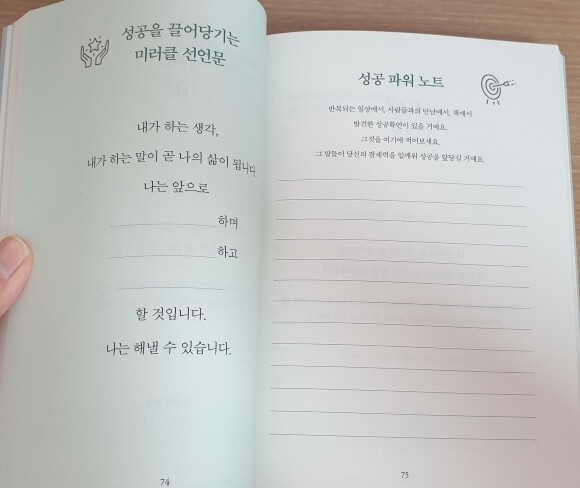 성공을 끌어당기는
미러클 선언문
내가 하는 생각,
내가 하는 말이 곧 나의 삶이 됩니다.
나는 앞으로
하며
하고
할 것입니다.
나는 해낼 수 있습니다.
74
성공 파워 노트
반복되는 일상에서, 사람들과의 만남에서, 책에서
발견한 성공확언이 있을 거예요.
그것을 여기에 적어보세요.
그 말들이 당신의 잠재력을 일깨워 성공을 앞당길 거예요.
75